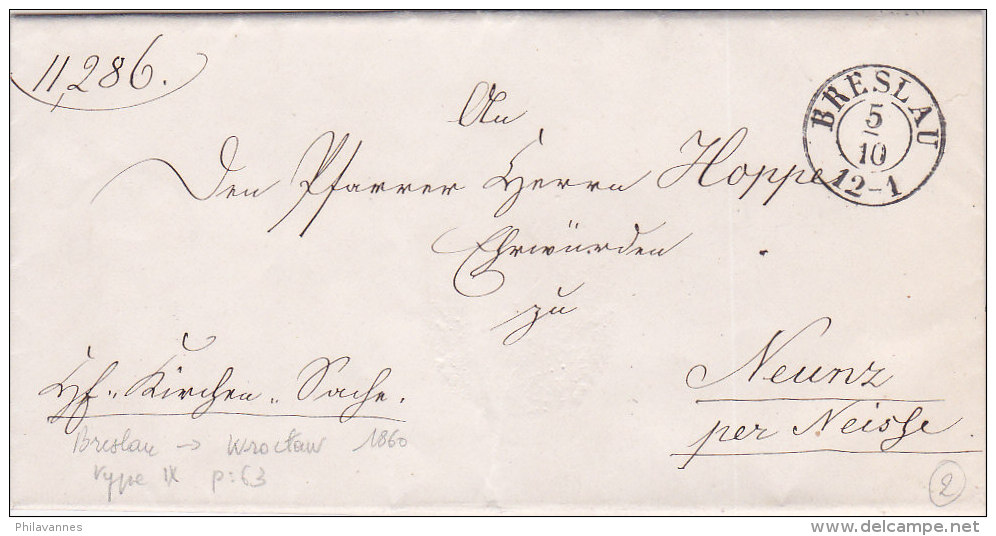 11,286.
BRESLAU
5
10
12-1
An
Den Pfarrer Herrn Hoppe
Ehrwürden
zu
Neunz
per Neisse.
Kirchen-Sache.
Breslau → Wrocław 1860
Type IX p:63
2
Philavannes
delcampe.net